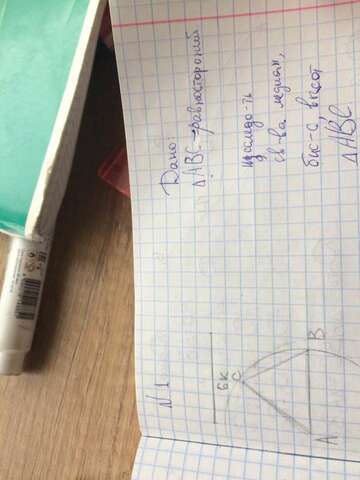 № 1
Дано:
△ABC - равносторонний
исследо-ть
св-ва медиан,
бис-с, высот
△ABC
6 к
C
A B